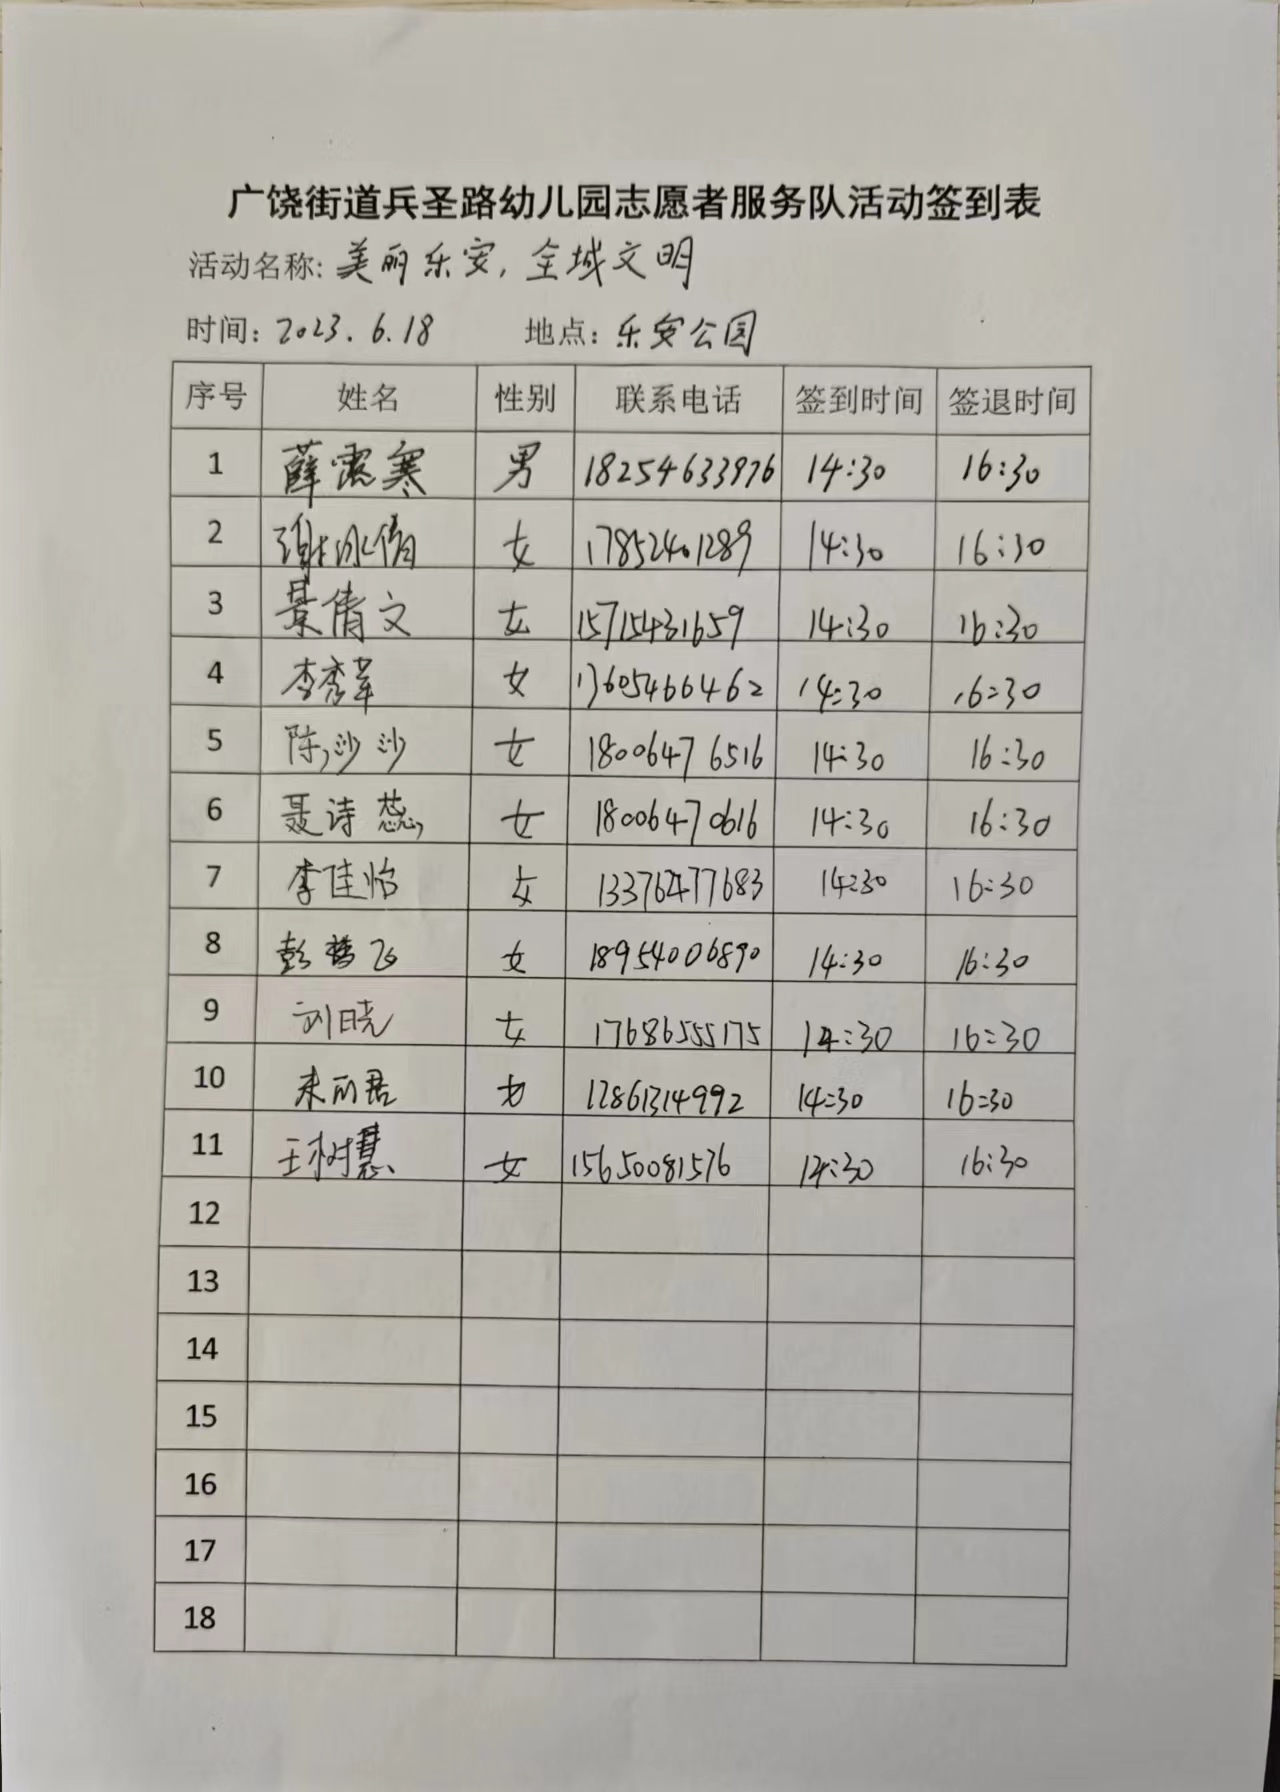 广饶街道兵圣路幼儿园志愿者服务队活动签到表
活动名称: 美丽乐安, 全域文明
时间: 2023.6.18 地点: 乐安公园
序号 姓名 性别 联系电话 签到时间 签退时间
1 薛露寒 男 18254633976 14:30 16:30
2 谢冰倩 女 17852401289 14:30 16:30
3 景倩文 女 15715431659 14:30 16:30
4 李秀苹 女 13605466462 14:30 16:30
5 陈沙沙 女 18006476516 14:30 16:30
6 聂诗蕊 女 18006470616 14:30 16:30
7 李佳怡 女 13376477683 14:30 16:30
8 彭梦飞 女 18954006890 14:30 16:30
9 刘晓 女 17686555175 14:30 16:30
10 来丽君 女 14:30 16:30
11 王树慧 女 15650081576 14:30 16:30
12
13
14
15
16
17
18